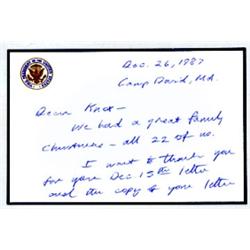 Dec. 26, 1987
Camp David, Md.
Dear Knox—
We had a great family
Christmas — all 22 of us.
I want to thank you
for your Dec 15th letter
and the copy of your letter